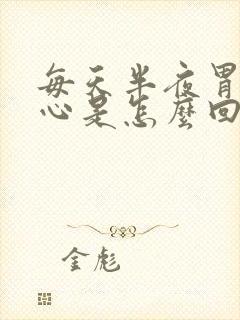 每天半夜胃
心是怎麼回
金彪